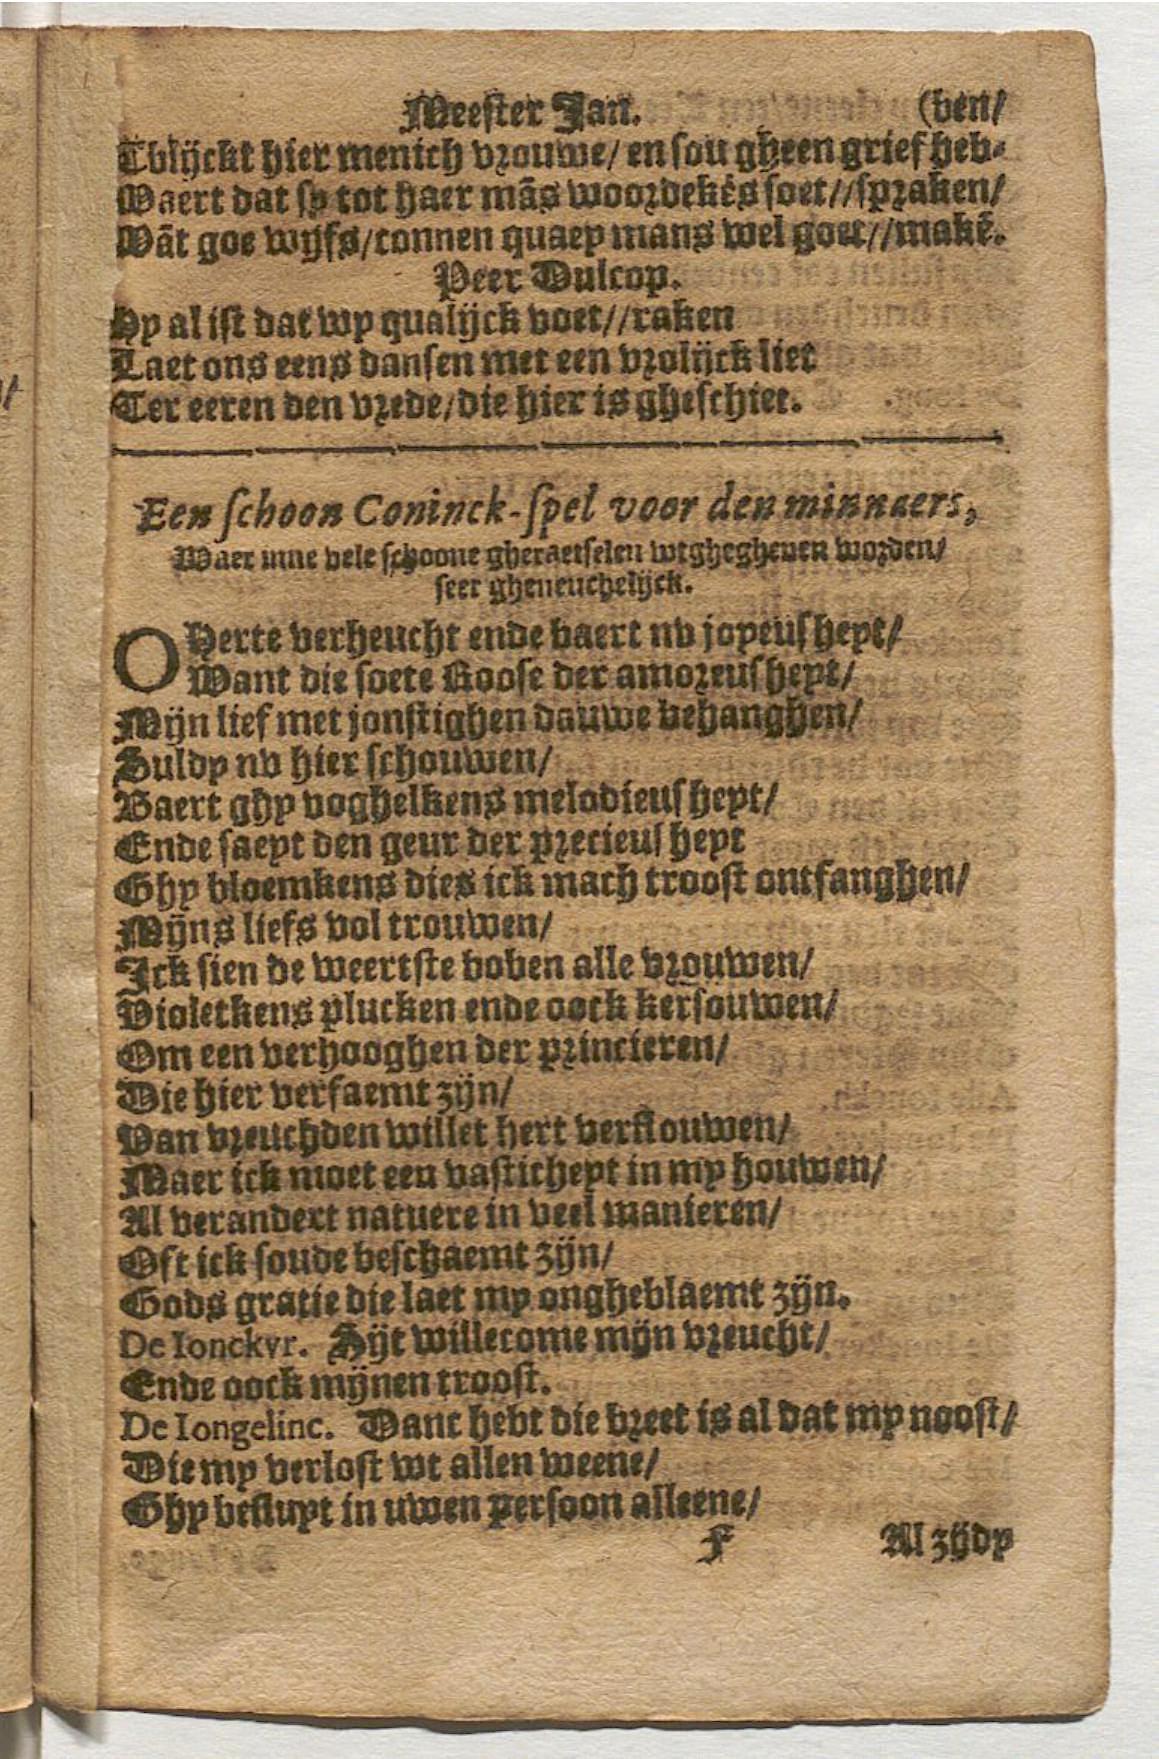 Meester Jan. (ben/
Tblijckt hier menich vrouwe/ en sou gheen grief heb-
Waert dat sy tot haer mãs woordekẽs soet//spraken/
Wãt goe wijfs/connen quaey mans wel goet//makẽ.
Peer Dulcop.
Hy al ist dat wy qualijck voet//raken
Laet ons eens dansen met een vrolijck liet
Ter eeren den vrede/die hier is gheschiet.
Een schoon Coninck-spel voor den minnaers,
Waer inne vele schoone gheraetselen wtghegheven worden/
seer gheneuchelijck.
O Herte verheucht ende baert nv joyeusheyt/
Want die soete Roose der amoreusheyt/
Mijn lief met jonstighen dauwe behanghen/
Suldy nv hier schouwen/
Baert ghy voghelkens melodieusheyt/
Ende saeyt den geur der precieusheyt
Ghy bloemkens dies ick mach troost ontfanghen/
Mijns liefs vol trouwen/
Ick sien de weertste boven alle vrouwen/
Violetkens plucken ende oock kersouwen/
Om een verhooghen der princieren/
Die hier verfaemt zijn/
Van vreuchden willet hert verflouwen/
Maer ick moet een vasticheyt in my houwen/
Al verandert natuere in veel manieren/
Oft ick soude beschaemt zijn/
Gods gratie die laet my ongheblaemt zijn.
De Ionckvr. Sijt willecome mijn vreucht/
Ende oock mijnen troost.
De Iongelinc. Danc hebt die vreet is al dat my noost/
Die my verlost wt allen weene/
Ghy besluyt in uwen persoon alleene/
F Al zijdy